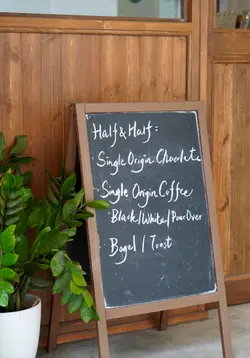 Half & Half:
· Single Origin Chocolate
· Single Origin Coffee
· Black/White/Pour Over
· Bagel / Toast